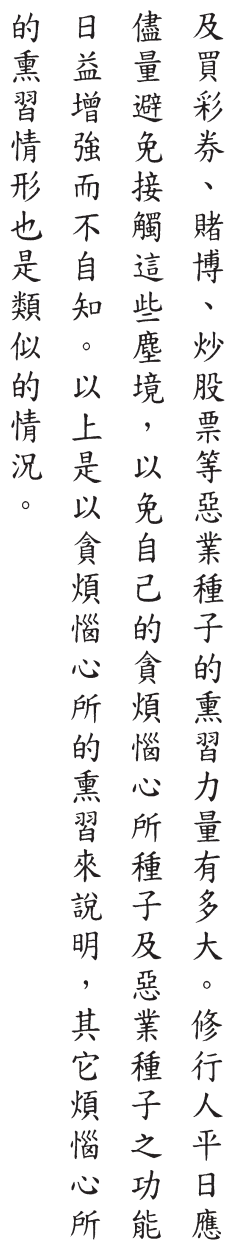 及買彩券、賭博、炒股票等惡業種子的熏習力量有多大。修行人平日應
儘量避免接觸這些塵境，以免自己的貪煩惱心所種子及惡業種子之功能
日益增強而不自知。以上是以貪煩惱心所的熏習來說明，其它煩惱心所
的熏習情形也是類似的情況。